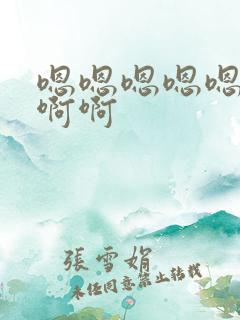 嗯嗯嗯嗯嗯
啊啊
張雪娟
未经同意禁止转载